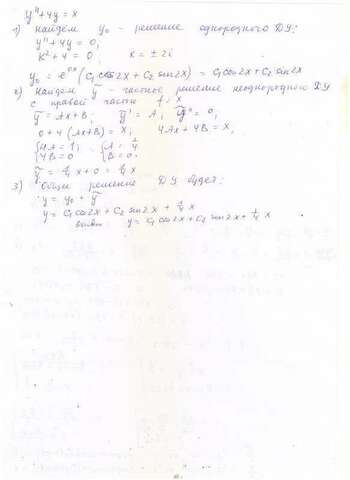 y"+4y=x
1) Найдем y₀ - решение однородного ДУ:
y"+4y=0;
k²+4=0; k=±2i
y₀=e^{0x}(C₁cos2x+C₂sin2x)=C₁cos2x+C₂sin2x
2) Найдем ỹ - частное решение неоднородного ДУ
с правой частью f=x
ỹ=Ax+B; ỹ'=A; ỹ"=0;
0+4(Ax+B)=x; 4Ax+4B=x;
{4A=1; {A=1/4
{4B=0 {B=0.
ỹ=1/4x+0=1/4x
3) Общее решение ДУ будет:
y=y₀+ỹ
y=C₁cos2x+C₂sin2x+1/4x
y=C₁cos2x+C₂sin2x+1/4x